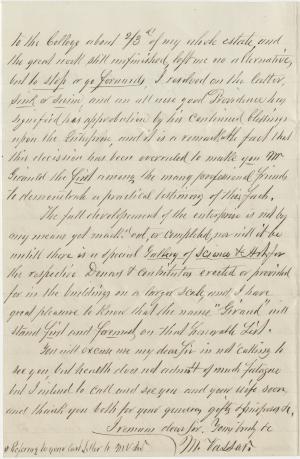 to the College about 2/3 ds of my whole estate, and
the great work still unfinished, left me no alternative,
but to stop or go forwards, I resolved on the latter,
sink or swim, and an all wise, good Providence has
signified his approbation by his continued blessings
upon the enterprise, and it is a remarkable fact that
this decission has been overruled to make you Mr
Giraud the first among the many professional friends
to demonstrate a practical testimony of this fact.
The full developement of the enterprise is not by
any means yet mark'd out, or completed, nor will it be
untill there is a special Gallery of Science & Arts for
the respective Donors & Contributors erected or provided
for in the building on a large scale, and I have
great pleasure to know that the name "Giraud" will
stand first and formost, on that Honorable List.
You will excuse me my dear Sir in not calling to
see you, but health does not admit of much fatigue
but I intend to call and see you and your wife soon
and thank you both for your generous gifts
I remain dear Sir. Yours truly be
M. Vassar.
* Refering to your last Letter to